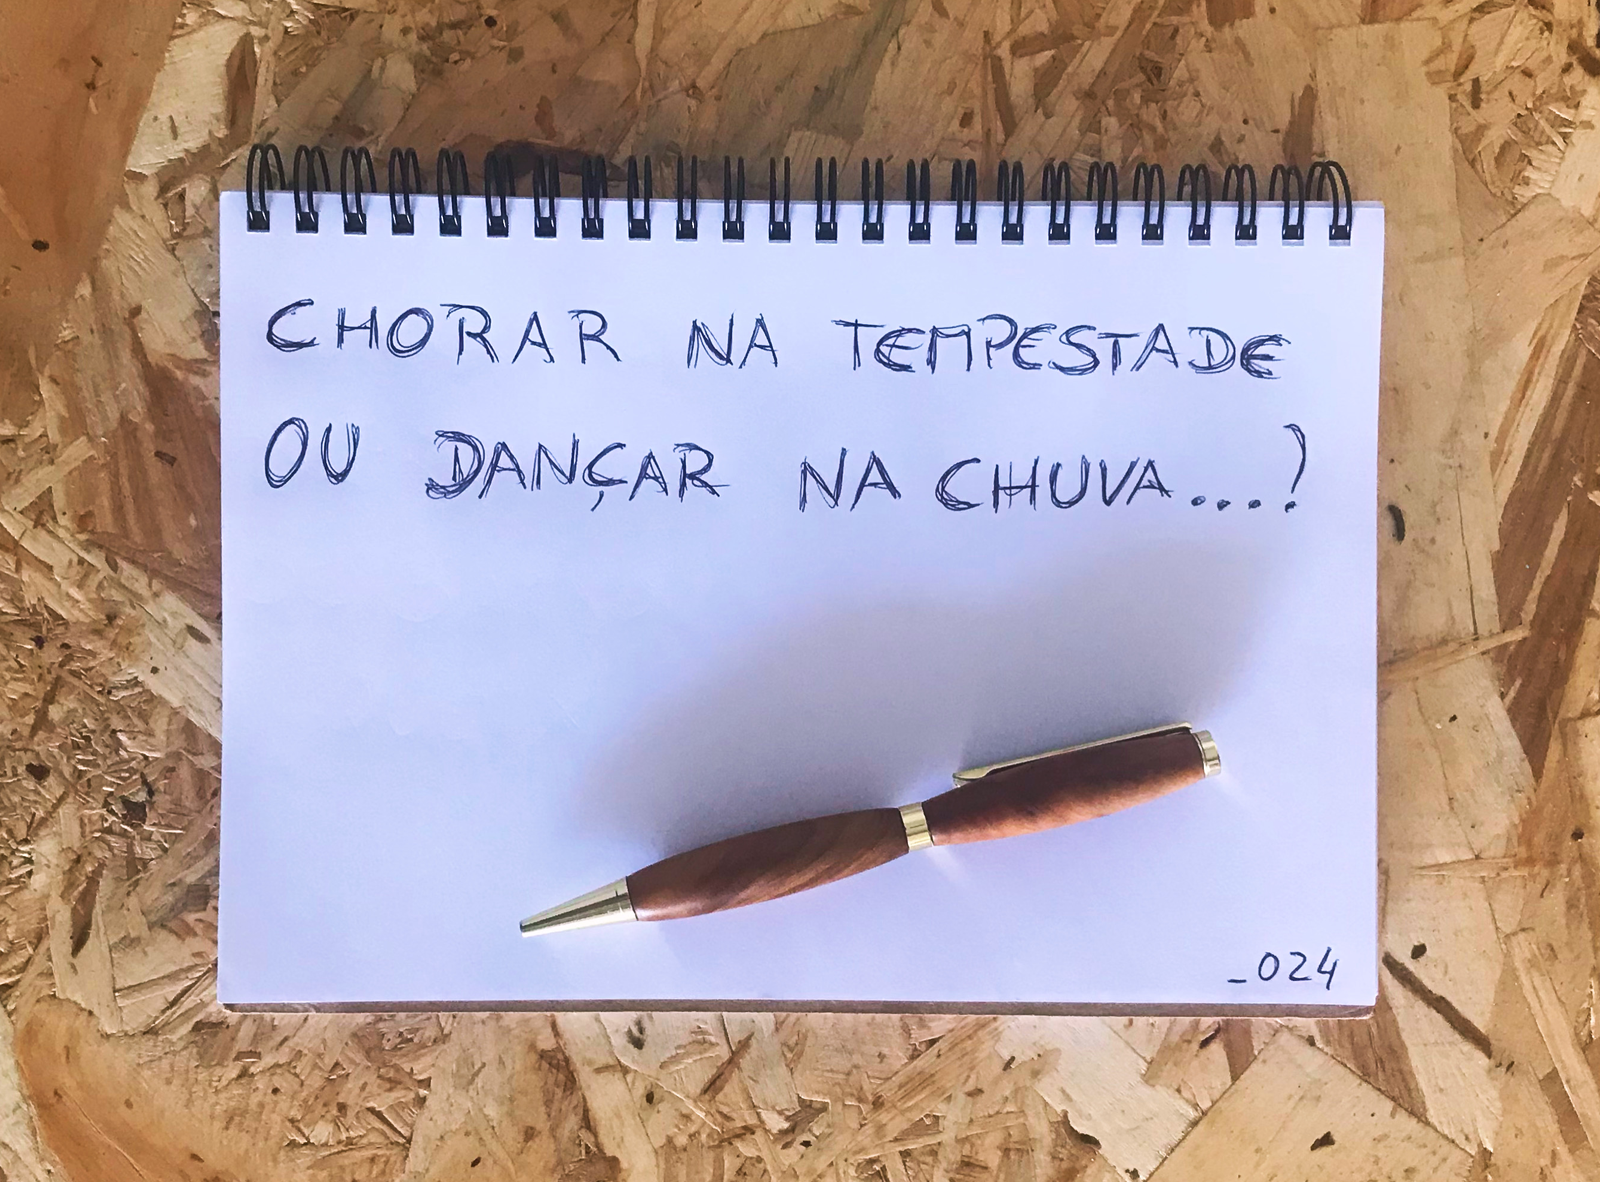 CHORAR NA TEMPESTADE
OU DANÇAR NA CHUVA...?
_024